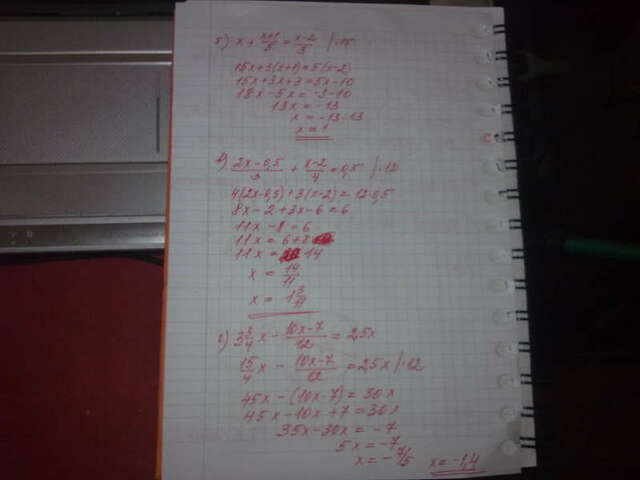 б) x + x+1/5 = x-2/3 |·15
15x+3(x+1)=5(x-2)
15x+3x+3=5x-10
18x-5x=-3-10
13x=-13
x=-13:13
x=1
в) 2x-0,5/3 + x-2/4 =0,5 |·12
4(2x-0,5)+3(x-2)=12·0,5
8x-2+3x-6=6
11x-8=6
11x=6+8
11x=14
x = 14/11
x = 1 3/11
г) 3 3/4 x - 10x-7/12 = 2,5x
15/4 x - 10x-7/12 = 2,5x |·12
45x-(10x-7)=30x
45x-10x+7=30x
35x-30x=-7
5x=-7
x=-7/5 x=-1,4